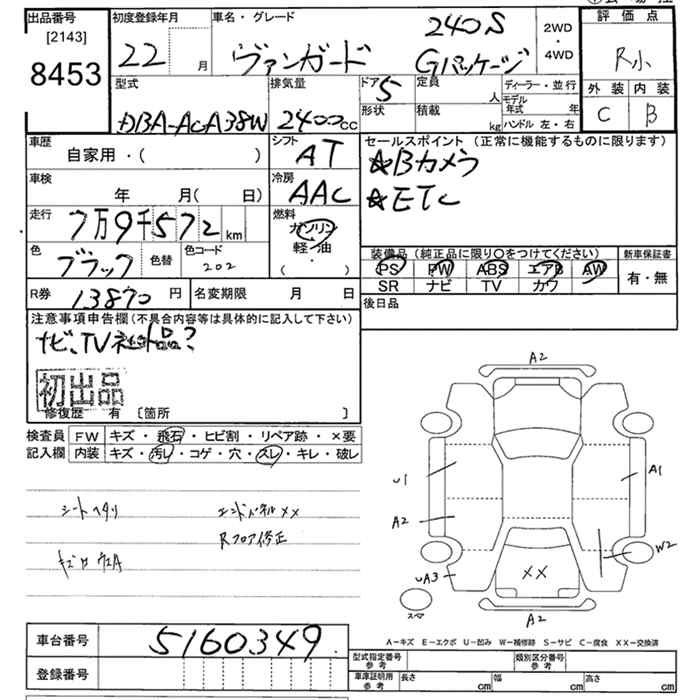 出品番号
[2143]
8453
初度登録年月
22 月
車名・グレード
ヴァンガード
240S
Gパッケージ
2WD
・
4WD
評価点
R小
外装 内装
C B
型式
DBA-ACA38W
排気量
2400cc
ドア
5
形状
定員
人
積載
kg
ディーラー・並行
モデル年式 年
ハンドル 左・右
車歴
自家用・( )
シフト
AT
車検
年 月( 日)
冷房
AAC
走行
7万9千572km
燃料
ガソリン
軽・油
・( )
色
ブラック
色替
色コード
202
R券 13870円
名変期限 月 日
セールスポイント(正常に機能するものに限ります)
☆Bカメラ
☆ETC
装備品(純正品に限り○をつけてください)
PS PW ABS エアB AW
SR ナビ TV カワ
新車保証書
有・無
後日品
注意事項申告欄(不具合内容等は具体的に記入して下さい)
ナビ、TV社外品?
初出品
修復歴 有 [箇所 ]
検査員記入欄
FW キズ・飛石・ヒビ割・リペア跡・×要
内装 キズ・汚レ・コゲ・穴・スレ・キレ・破レ
シートヘタリ
エンドパネルXX
Rフロア修正
A2
U1
A2
UA3
A1
W2
XX
A2
スペア
A-キズ E-エクボ U-凹み W-補修跡 S-サビ C-腐食 XX-交換済
車台番号 5160349
登録番号
型式指定番号
参考
類別区分番号
参考
車庫証明用
参考
長さ cm
幅 cm
高さ cm